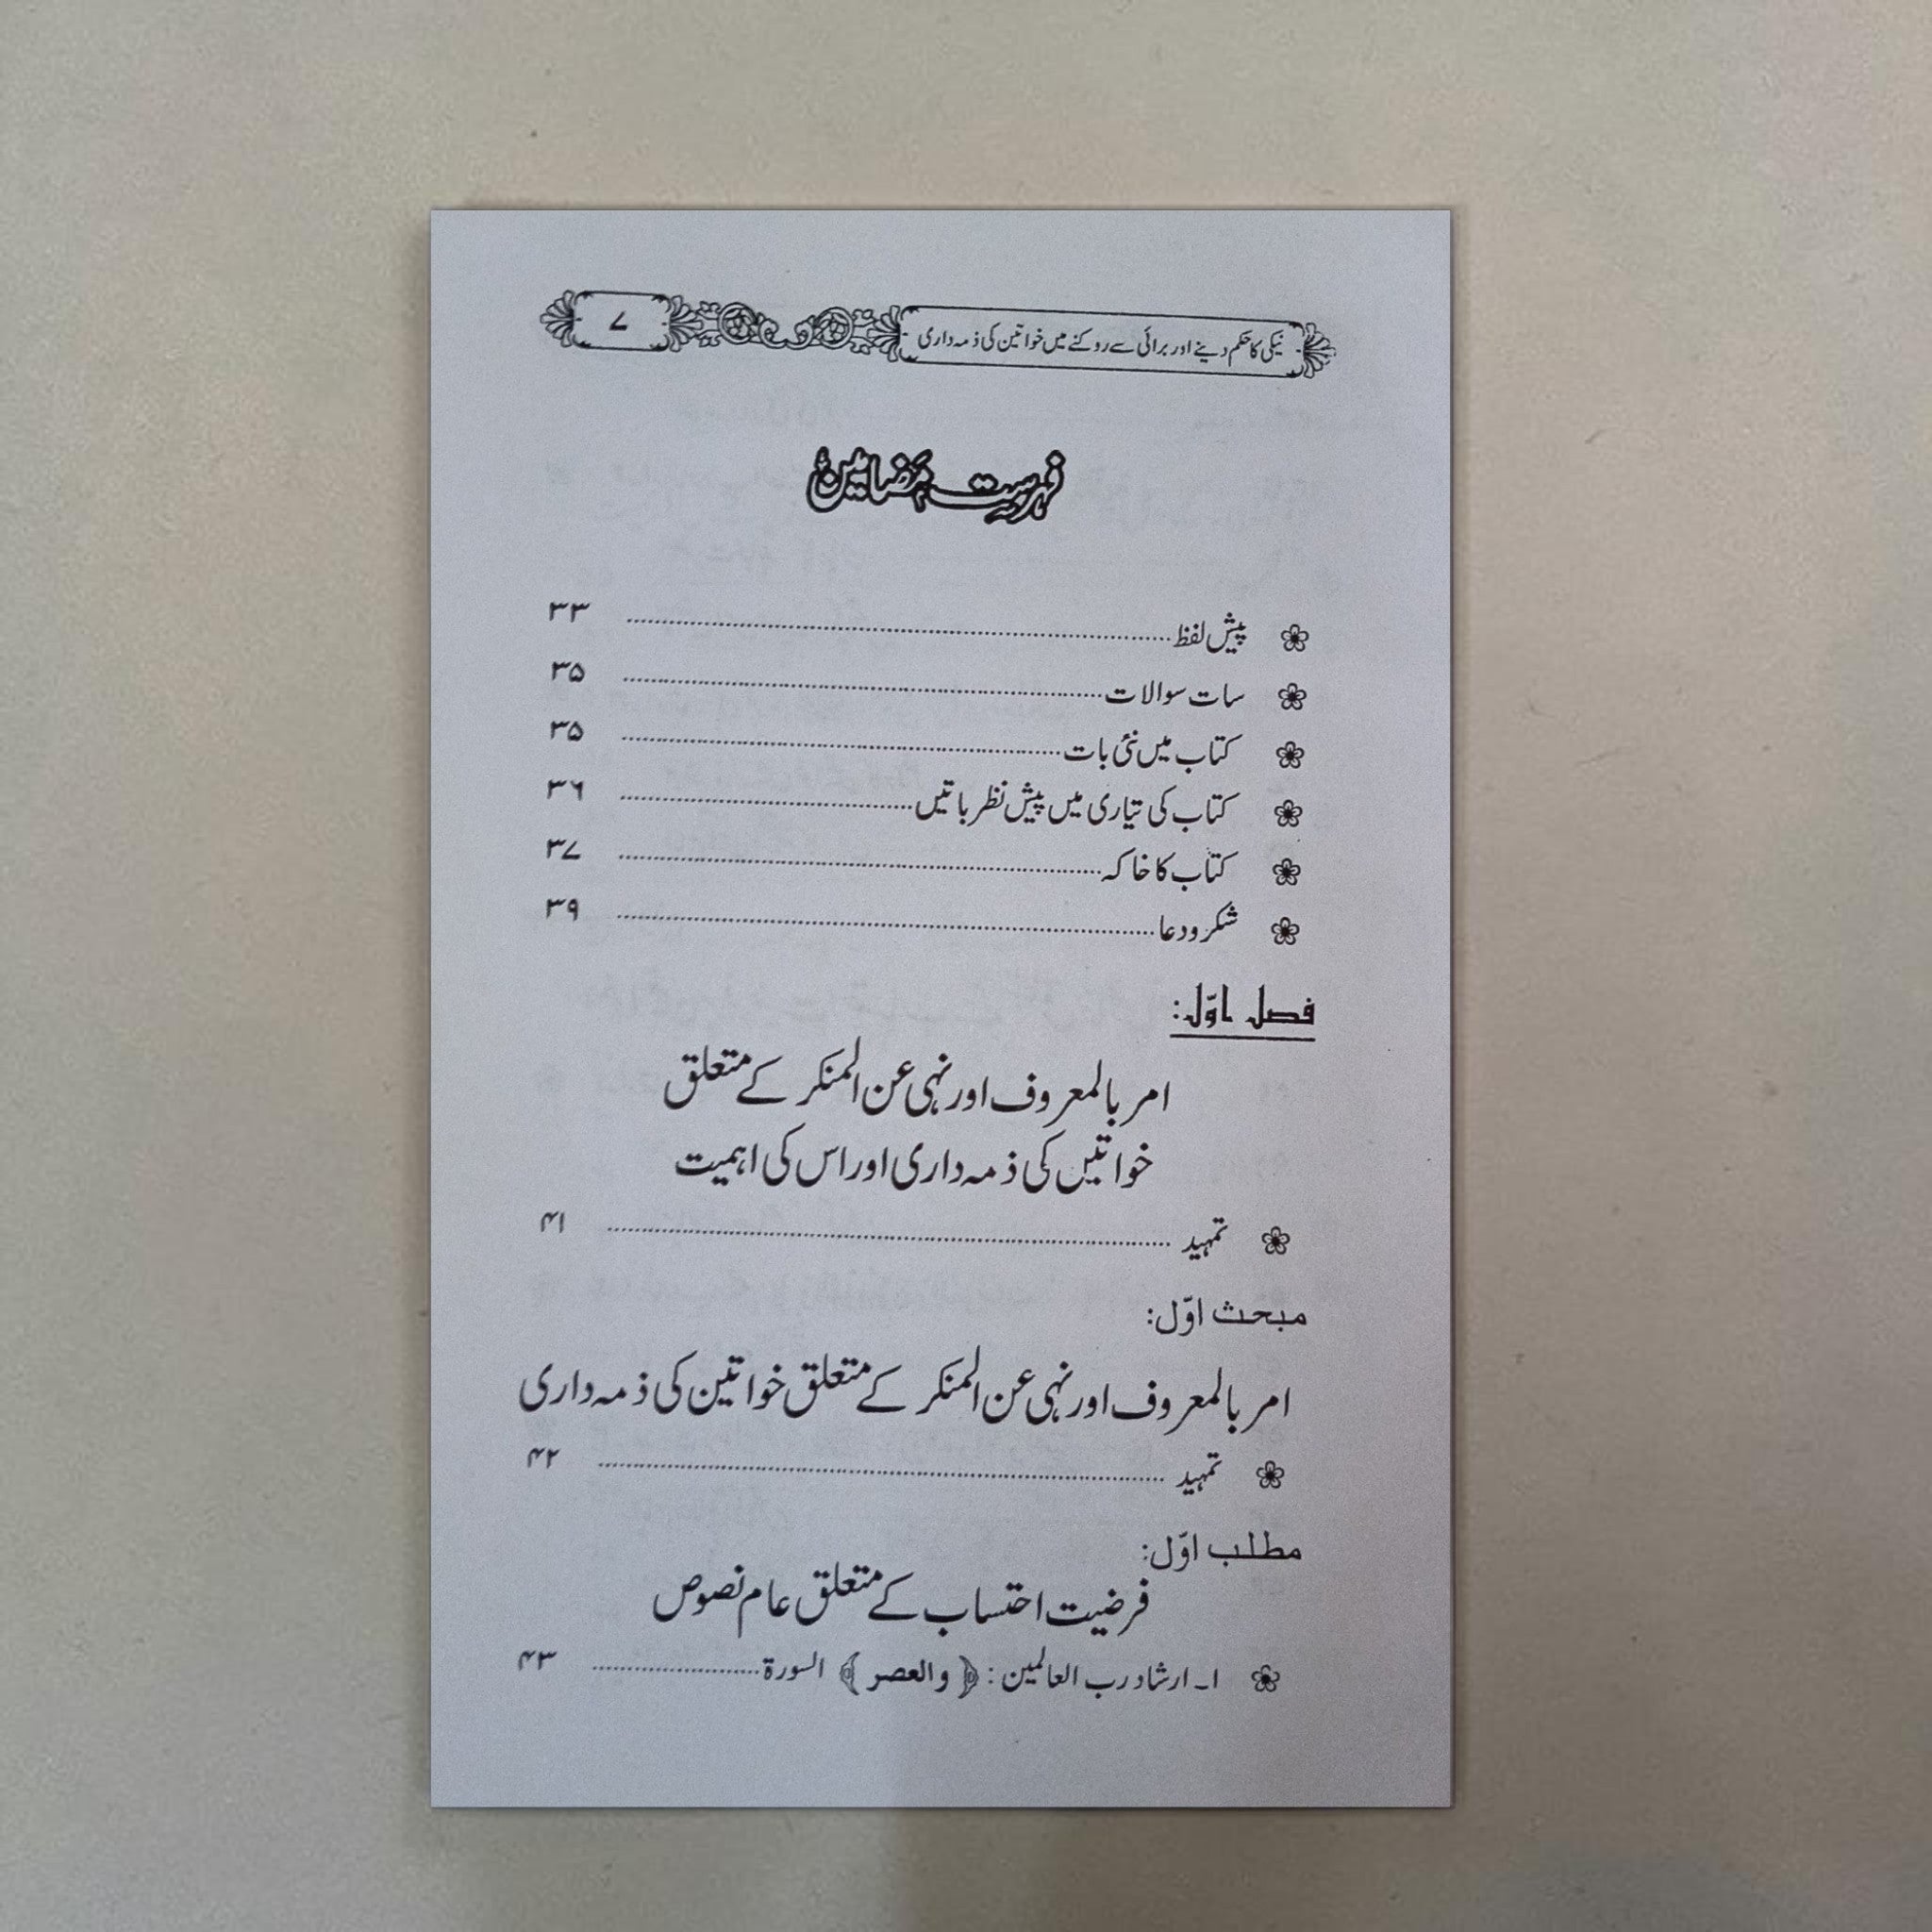 نیکی کا حکم دینے اور برائی سے روکنے میں خواتین کی ذمہ داری ۷
فہرست مضامین
پیش لفظ ۳۳
سات سوالات ۳۵
کتاب میں نئی بات ۳۵
کتاب کی تیاری میں پیش نظر باتیں ۳۶
کتاب کا خاکہ ۳۷
شکر و دعا ۳۹
فصل اوّل:
امر بالمعروف اور نہی عن المنکر کے متعلق
خواتین کی ذمہ داری اور اس کی اہمیت
تمہید ۴۱
مبحث اوّل:
امر بالمعروف اور نہی عن المنکر کے متعلق خواتین کی ذمہ داری
تمہید ۴۲
مطلب اوّل:
فرضیت احتساب کے متعلق عام نصوص
۱۔ ارشاد رب العالمین: ﴿والعصر﴾ السورة ۴۳